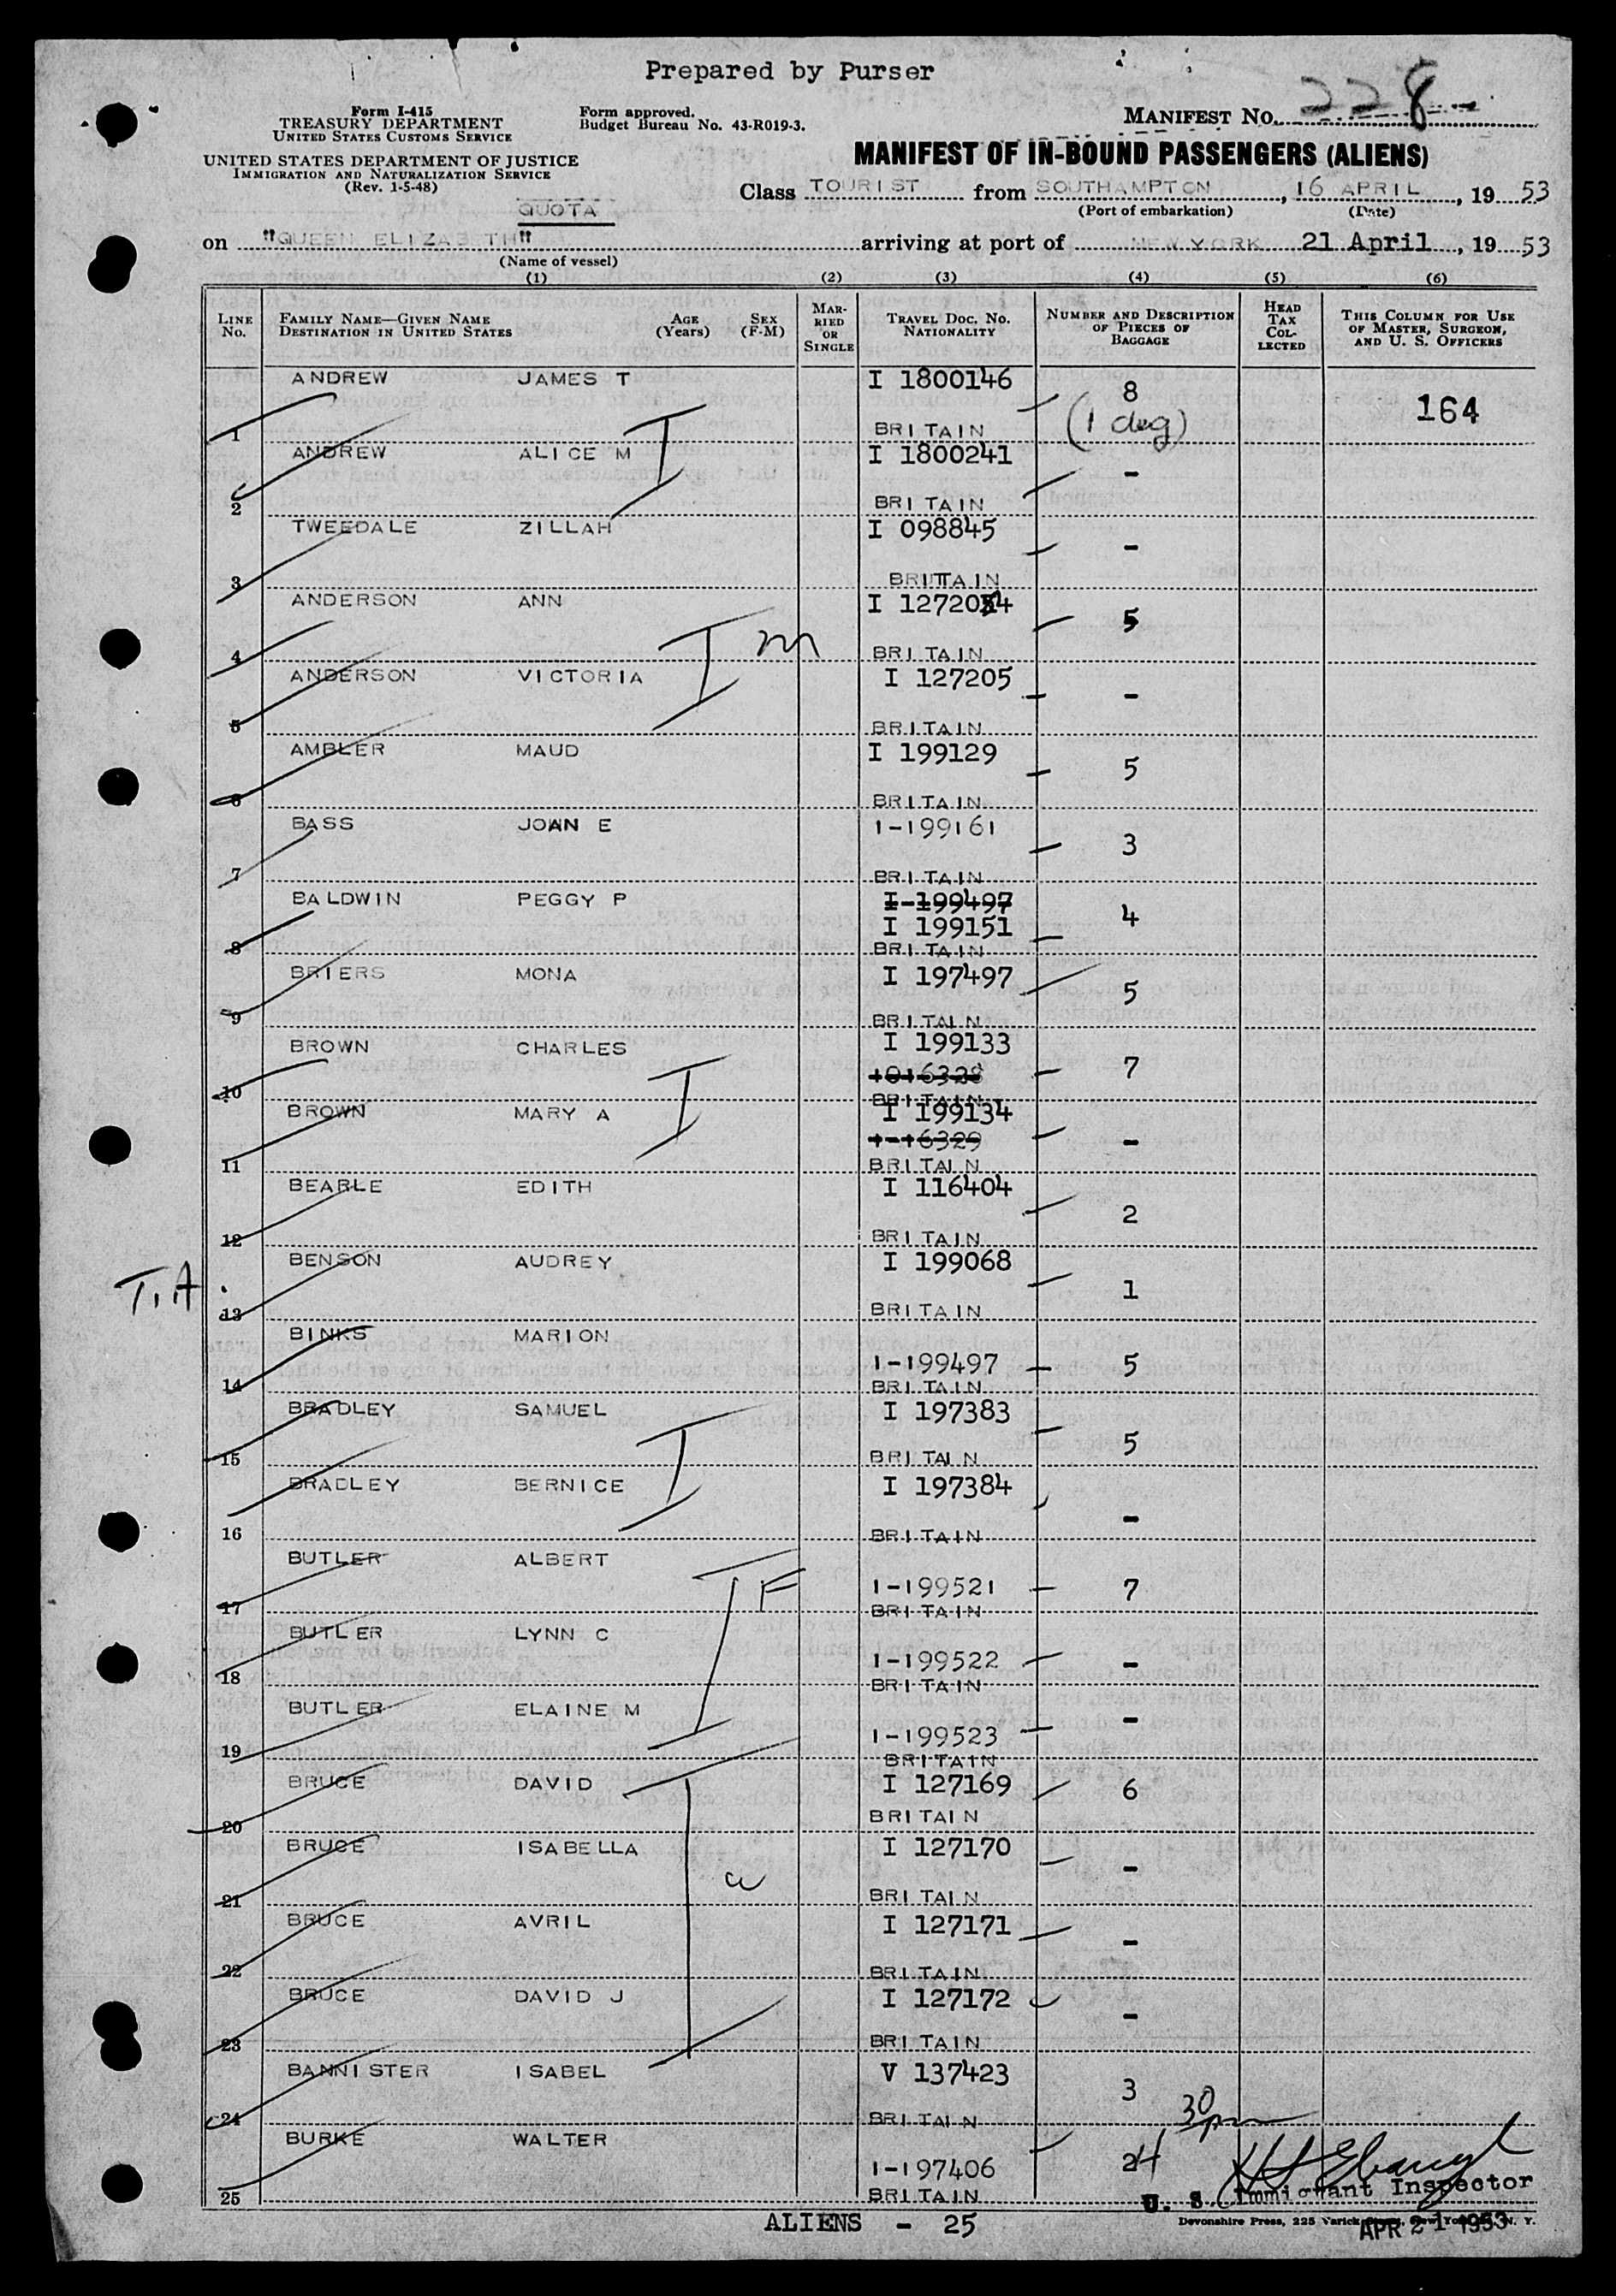 Prepared by Purser
Form I-415
TREASURY DEPARTMENT
UNITED STATES CUSTOMS SERVICE
UNITED STATES DEPARTMENT OF JUSTICE
IMMIGRATION AND NATURALIZATION SERVICE
(Rev. 1-5-48)
Form approved.
Budget Bureau No. 43-R019-3.
MANIFEST No. 228
MANIFEST OF IN-BOUND PASSENGERS (ALIENS)
Class TOURIST from SOUTHAMPTON, 16 APRIL, 19 53
(Port of embarkation) (Date)
QUOTA
on "QUEEN ELIZABETH" arriving at port of NEW YORK 21 April, 19 53
(Name of vessel)
(1) (2) (3) (4) (5) (6)
LINE No. FAMILY NAME—GIVEN NAME DESTINATION IN UNITED STATES AGE (Years) SEX (F-M) MARRIED OR SINGLE TRAVEL DOC. NO. NATIONALITY NUMBER AND DESCRIPTION OF PIECES OF BAGGAGE HEAD TAX COLLECTED THIS COLUMN FOR USE OF MASTER, SURGEON, AND U. S. OFFICERS
ANDREW JAMES T I 1800146 8 164
1 BRITAIN (1 deg)
ANDREW ALICE M I 1800241 -
2 BRITAIN
TWEEDALE ZILLAH I 098845 -
3 BRITTAIN
ANDERSON ANN I 127204 5
4 BRITAIN
m
ANDERSON VICTORIA I 127205 -
5 BRITAIN
AMBLER MAUD I 199129 5
6 BRITAIN
BASS JOAN E I-199161 3
7 BRITAIN
BALDWIN PEGGY P I-199497 4
I 199151
8 BRITAIN
BRIERS MONA I 197497 5
9 BRITAIN
BROWN CHARLES I 199133 7
1016328
10 BRITAIN
BROWN MARY A I 199134 -
1-16329
11 BRITAIN
BEARLE EDITH I 116404 2
12 BRITAIN
BENSON AUDREY I 199068 1
T.A 13 BRITAIN
BINKS MARION
I-199497 5
14 BRITAIN
BRADLEY SAMUEL I 197383 5
15 BRITAIN
BRADLEY BERNICE I 197384 -
16 BRITAIN
BUTLER ALBERT
F I-199521 7
17 BRITAIN
BUTLER LYNN C
I-199522 -
18 BRITAIN
BUTLER ELAINE M
I-199523 -
19 BRITAIN
BRUCE DAVID I 127169 6
20 BRITAIN
BRUCE ISABELLA I 127170 -
21 BRITAIN
BRUCE AVRIL I 127171 -
22 BRITAIN
BRUCE DAVID J I 127172 -
23 BRITAIN
BANNISTER ISABEL V 137423 3
24 BRITAIN
30
BURKE WALTER
I-197406
25 BRITAIN
U. S. Immigrant Inspector
ALIENS - 25
Devonshire Press, 225 Varick Street, New York, N. Y.
APR 21 1953